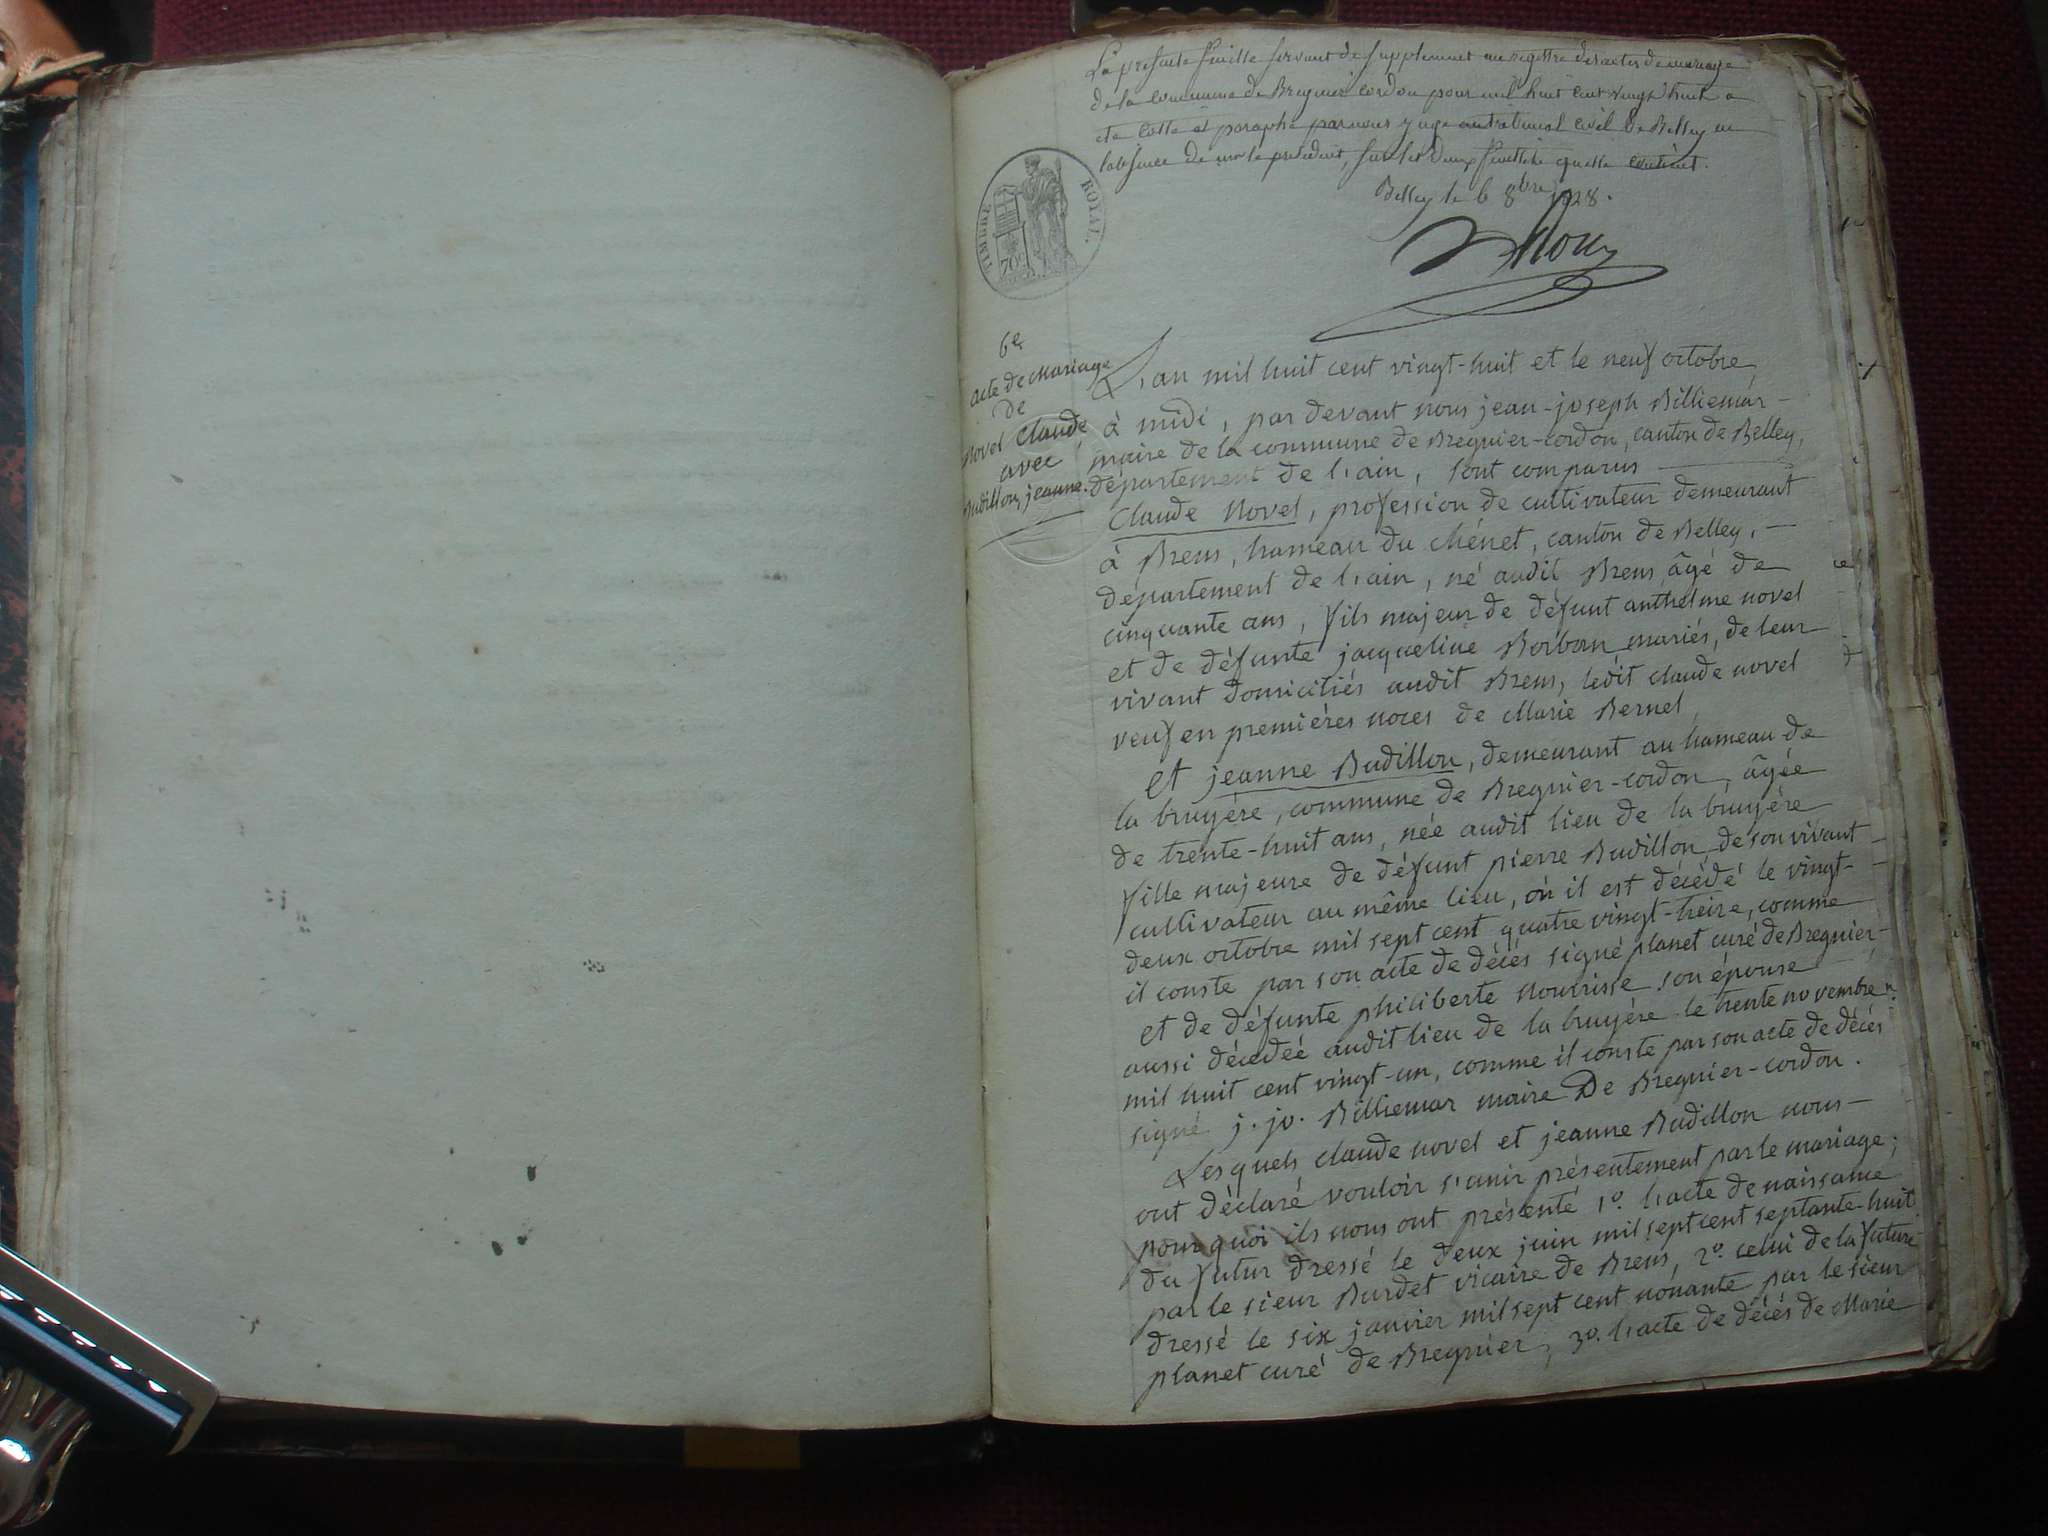 La presente feuille servant de supplement au registre des actes de mariage
de la commune de Bregnier cordon pour mil huit cent vingt huit a
ete cotté et paraphé par nous juge au tribunal civil de Belley en
labsence de mr le président, sur les deux feuillets quelle contient.
Belley le 6 8bre 1828.
TIMBRE ROYAL.
70c
6e
acte de Mariage
de
Novel Claude
avec
Budillon, jeanne.
L'an mil huit cent vingt-huit et le neuf octobre
à midi, par devant nous jean-joseph Billiemar-
maire de la commune de Bregnier-cordon, canton de Belley,
département de l'ain, sont comparus
Claude Novel, profession de cultivateur demeurant
à Brens, hameau du chénet, canton de Belley, -
département de l'ain, né audit Brens, âgé de
cinquante ans, fils majeur de défunt anthelme novel
et de défunte jacqueline Borbon mariés, de leur
vivant domiciliés audit Brens, ledit claude novel
veuf en premières noces de Marie Bernel
et jeanne Budillon, demeurant au hameau de
la bruyère, commune de Bregnier-cordon, âgée
de trente-huit ans, née audit lieu de la bruyère
fille majeure de défunt pierre Budillon de son vivant
cultivateur au même lieu, où il est décédé le vingt-
deux octobre mil sept cent quatre vingt-treize, comme
il conste par son acte de décés signé planet curé de Bregnier-
et de défunte philiberte Nourisse son épouse
aussi décedeé audit lieu de la bruyère le trente novembre
mil huit cent vingt-un, comme il conste par son acte de décés
signé j. jo. Billiemar maire De Bregnier-cordon.
Lesquels claude novel et jeanne Budillon nous -
ont déclaré vouloir s'unir présentement par le mariage;
pourquoi ils nous ont présenté 1o. l'acte de naissance
du futur dressé le deux juin mil sept cent septante-huit
par le sieur Burdet vicaire de Brens, 2o. celui de la future
dressé le six janvier mil sept cent nonante par le sieur
planet curé de Bregnier, 3o. l'acte de décés de Marie